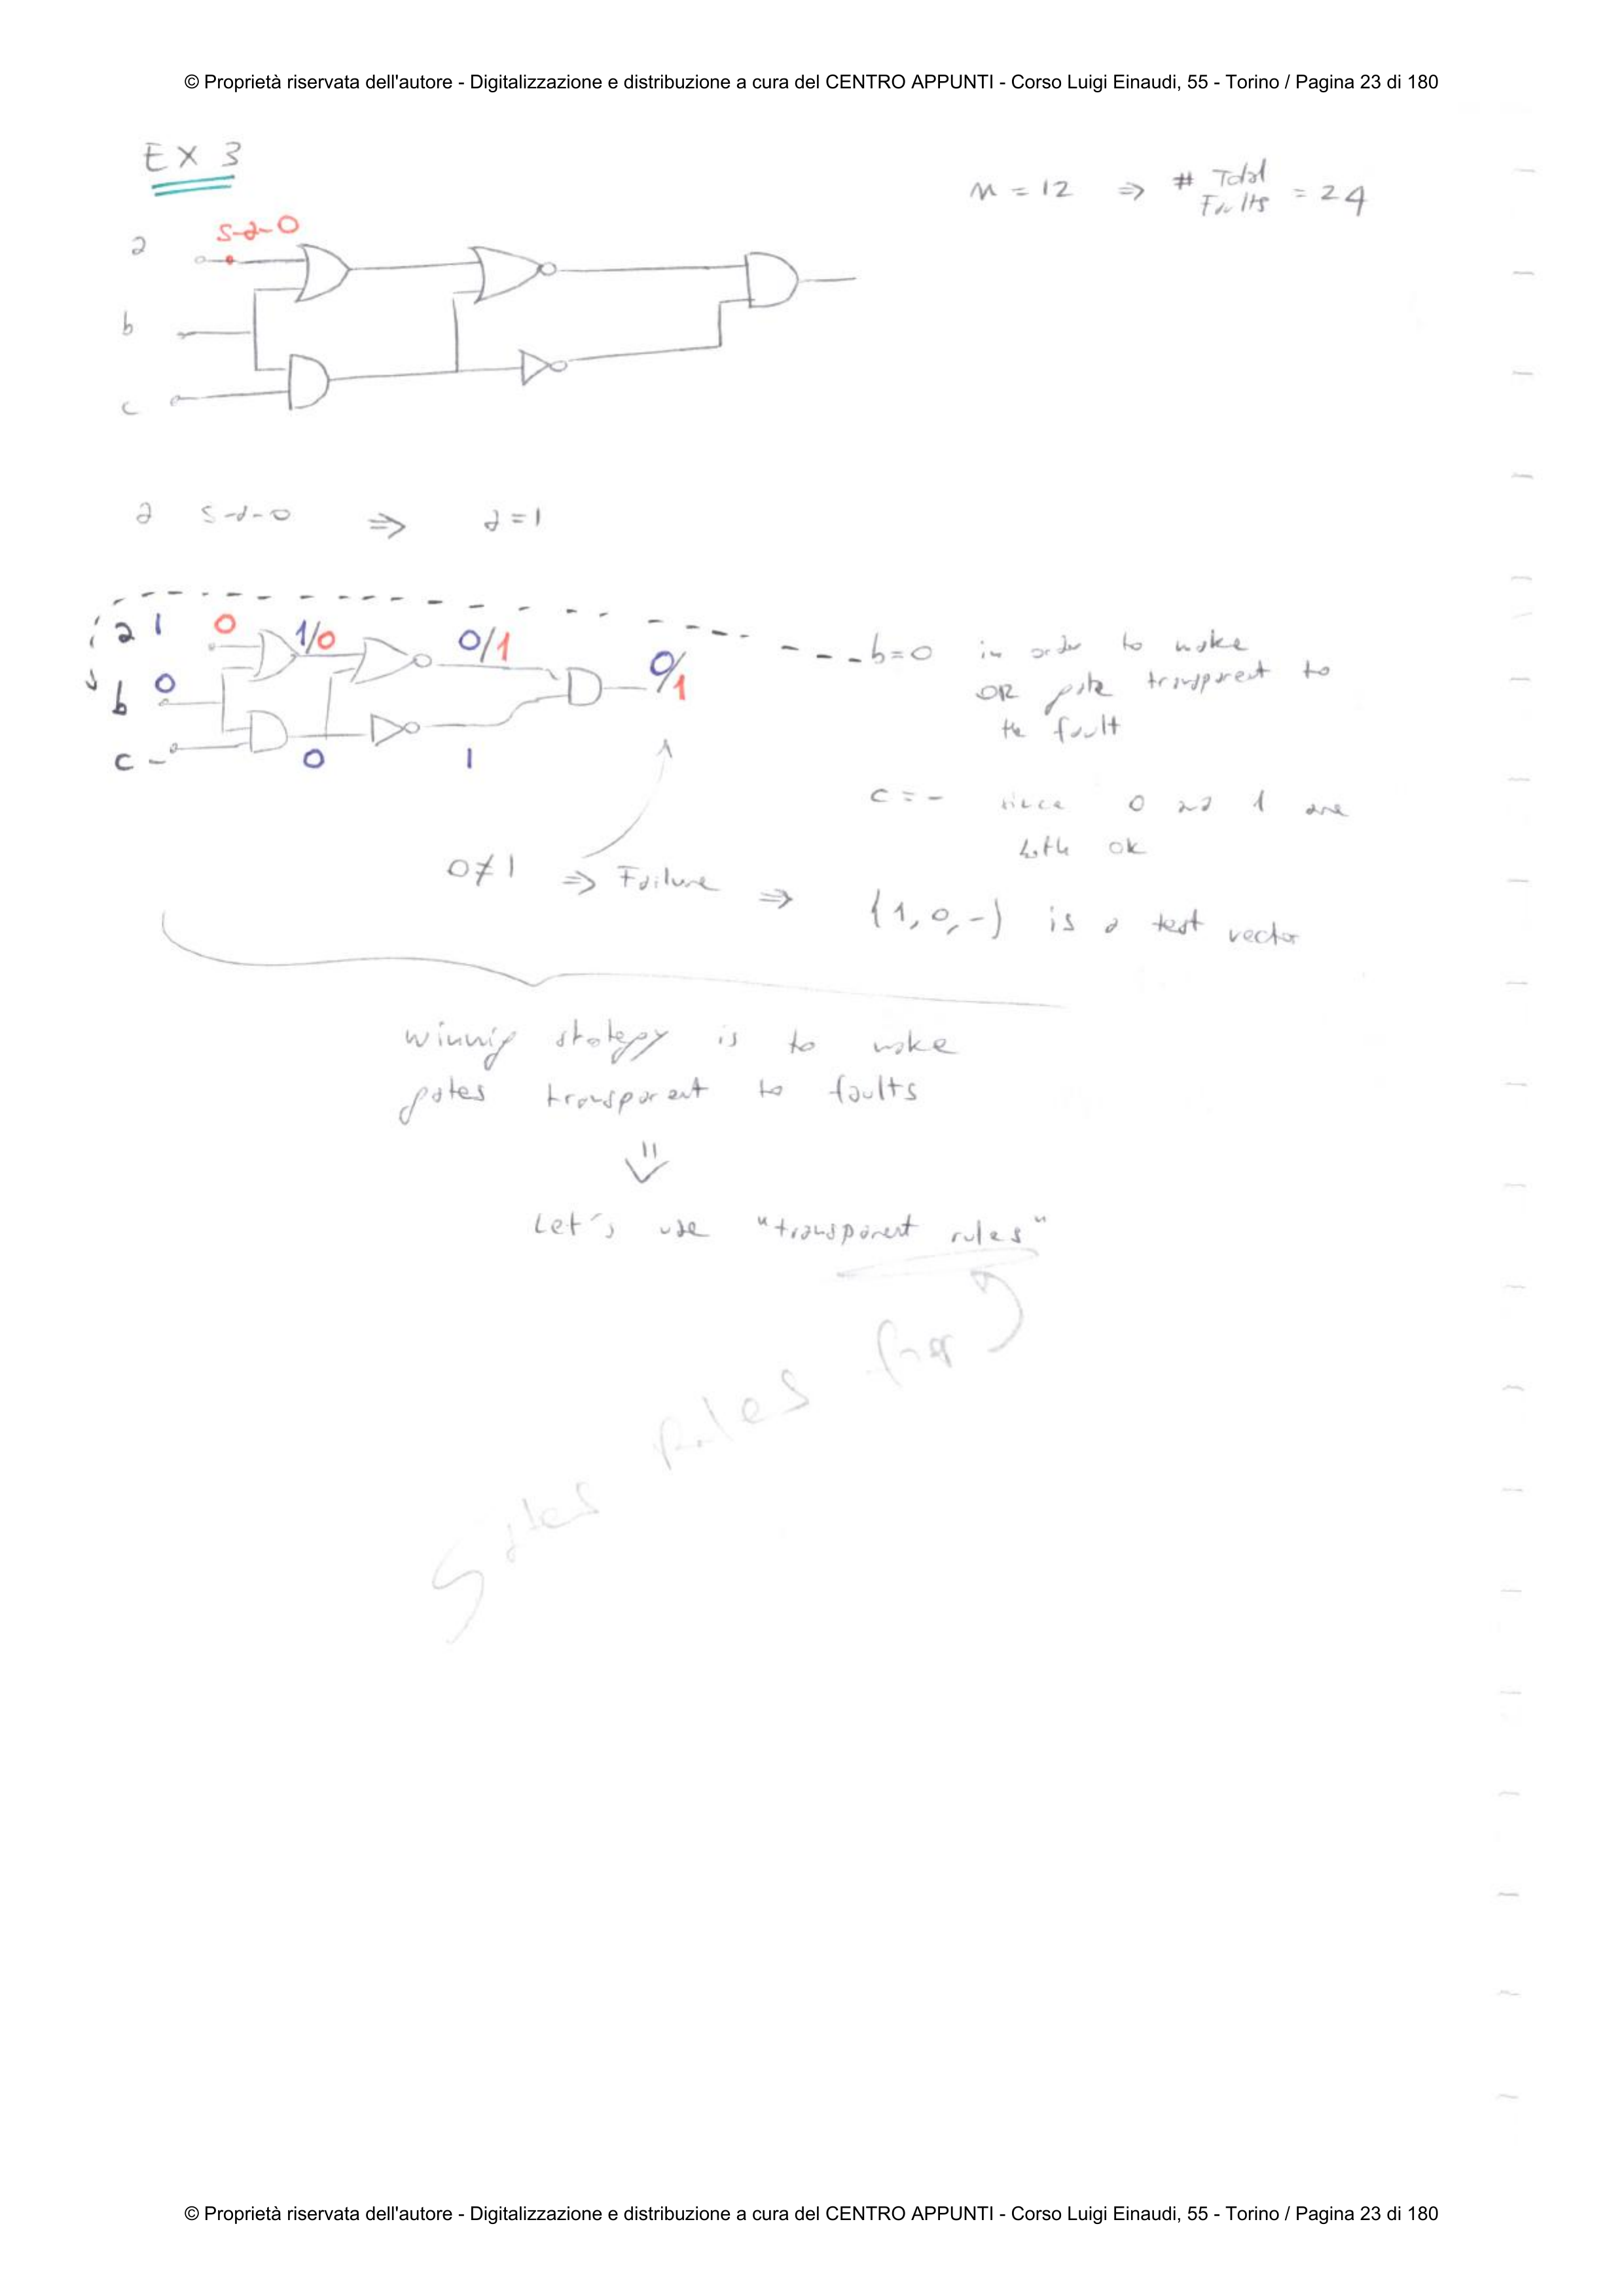 © Proprietà riservata dell'autore - Digitalizzazione e distribuzione a cura del CENTRO APPUNTI - Corso Luigi Einaudi, 55 - Torino / Pagina 23 di 180
EX 3
n = 12 ⇒ # Total Faults = 24
a s-a-0
b
c
a s-a-0 ⇒ a=1
a 1 0 1/0 0/1 0/1
b 0
c - 0 1
b=0 in order to make
OR gate transparent to
the fault
c = - since 0 and 1 are
both ok
0≠1 ⇒ Failure ⇒ {1,0,-} is a test vector
winnig strategy is to make
gates transparent to faults
⇓
Let's use "transparent rules"
© Proprietà riservata dell'autore - Digitalizzazione e distribuzione a cura del CENTRO APPUNTI - Corso Luigi Einaudi, 55 - Torino / Pagina 23 di 180